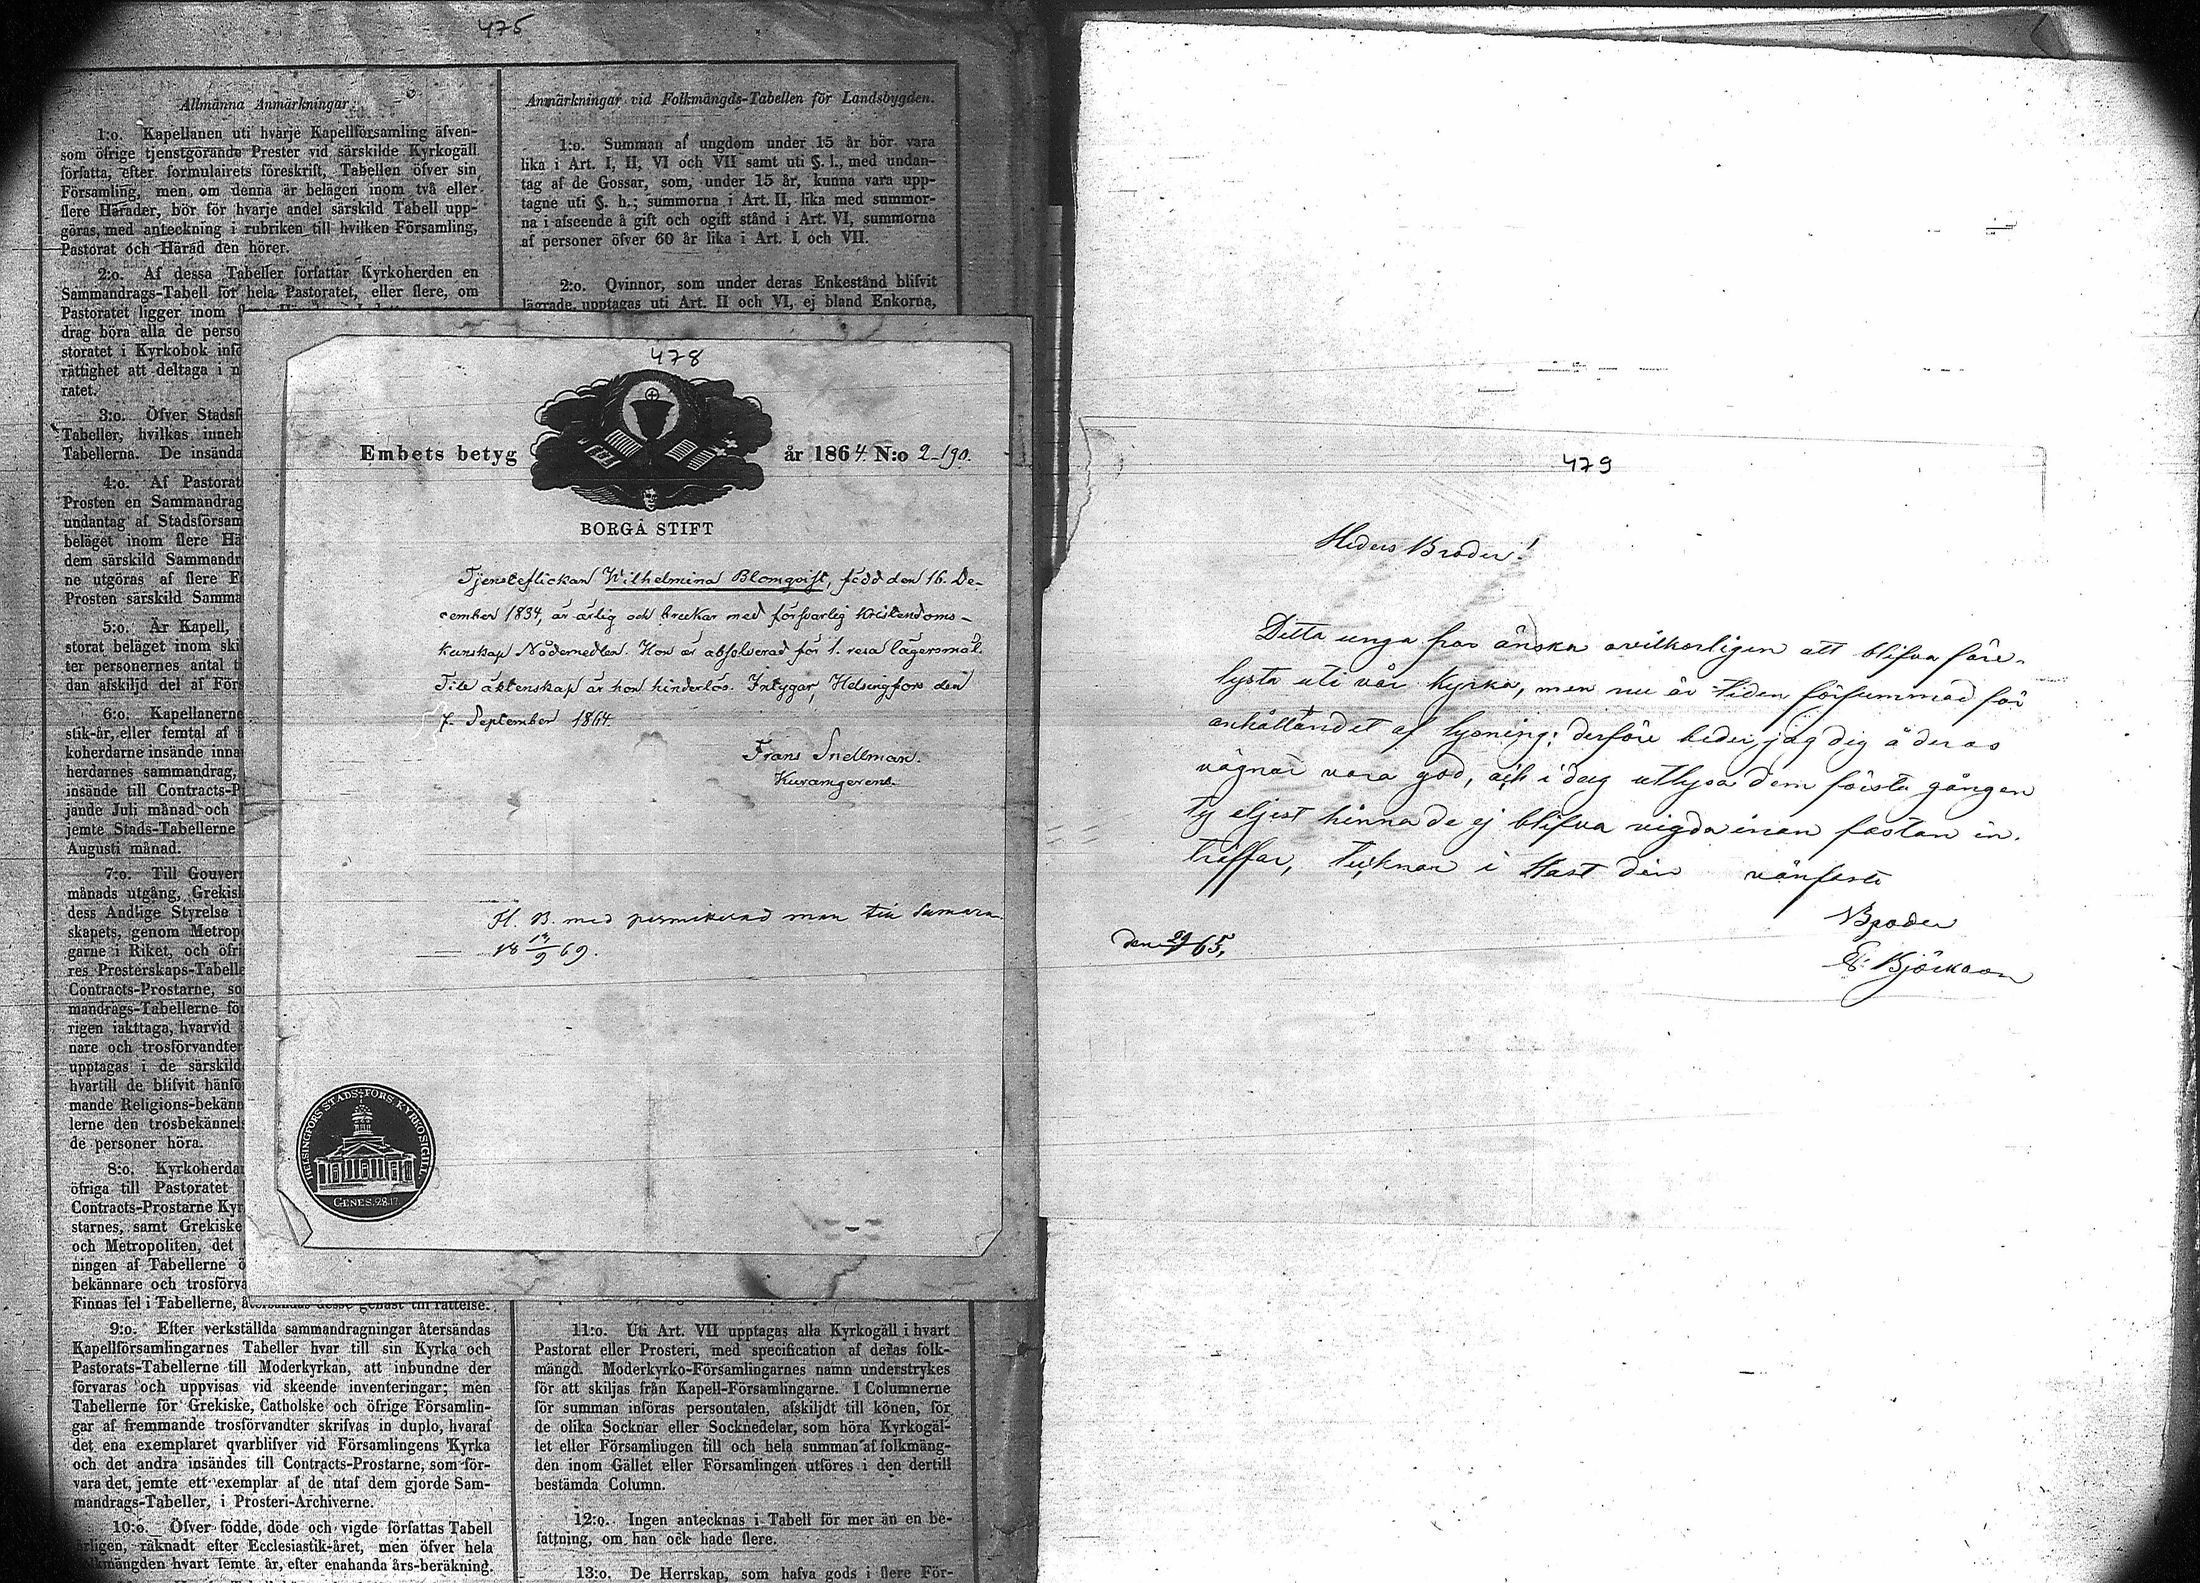 475
Allmänna Anmärkningar.
1:o. Kapellanen uti hvarje Kapellförsamling äfven-
som öfrige tjenstgörande Prester vid särskilde Kyrkogäll
författa, efter formulairets föreskrift, Tabellen öfver sin
Församling, men om denna är belägen inom två eller
flere Härader, bör för hvarje andel särskild Tabell upp-
göras, med anteckning i rubriken till hvilken Församling,
Pastorat och Härad den hörer.
2:o. Af dessa Tabeller författar Kyrkoherden en
Sammandrags-Tabell för hela Pastoratet, eller flere, om
Pastoratet ligger inom
drag böra alla de perso
storatet i Kyrkobok infö
rättighet att deltaga i n
ratet.
3:o. Öfver Stadsf
Tabeller, hvilkas inneh
Tabellerna. De insända
4:o. Af Pastorat
Prosten en Sammandrag
undantag af Stadsförsam
beläget inom flere Hä
dem särskild Sammandr
ne utgöras af flere F
Prosten särskild Samma
5:o. Är Kapell,
storat beläget inom ski
ter personernes antal ti
dan afskiljd del af Förs
6:o. Kapellanerne
stik-år, eller femtal af å
koherdarne insände inna
herdarnes sammandrag,
insände till Contracts-P
jande Juli månad och
jemte Stads-Tabellerne
Augusti månad.
7:o. Till Gouver
månads utgång, Grekisk
dess Andlige Styrelse i
skapets, genom Metrop
garne i Riket, och öfri
res Presterskaps-Tabelle
Contracts-Prostarne, so
mandrags-Tabellerne fö
rigen iakttaga, hvarvid
nare och trosförvandter
upptagas i de särskild
hvartill de blifvit hänfö
mande Religions-bekänn
lerne den trosbekännels
de personer höra.
8:o. Kyrkoherda
öfriga till Pastoratet
Contracts-Prostarne Kyr
starnes, samt Grekiske
och Metropoliten, det
ningen af Tabellerne ö
bekännare och trosförva
Finnas fel i Tabellerne, återsändas desse genast till rättelse.
9:o. Efter verkställda sammandragningar återsändas
Kapellförsamlingarnes Tabeller hvar till sin Kyrka och
Pastorats-Tabellerne till Moderkyrkan, att inbundne der
förvaras och uppvisas vid skeende inventeringar; men
Tabellerne för Grekiske, Catholske och öfrige Församlin-
gar af fremmande trosförvandter skrifvas in duplo, hvaraf
det ena exemplaret qvarblifver vid Församlingens Kyrka
och det andra insändes till Contracts-Prostarne, som för-
vara det, jemte ett exemplar af de utaf dem gjorde Sam-
mandrags-Tabeller, i Prosteri-Archiverne.
10:o. Öfver födde, döde och vigde författas Tabell
årligen, räknadt efter Ecclesiastik-året, men öfver hela
folkmängden hvart femte år, efter enahanda års-beräkning.
Anmärkningar vid Folkmängds-Tabellen för Landsbygden.
1:o. Summan af ungdom under 15 år bör vara
lika i Art. I, II, VI och VII samt uti §. l., med undan-
tag af de Gossar, som, under 15 år, kunna vara upp-
tagne uti §. h.; summorna i Art. II, lika med summor-
na i afseende å gift och ogift stånd i Art. VI, summorna
af personer öfver 60 år lika i Art. I och VII.
2:o. Qvinnor, som under deras Enkestånd blifvit
lägrade, upptagas uti Art. II och VI, ej bland Enkorna,
11:o. Uti Art. VII upptagas alla Kyrkogäll i hvart
Pastorat eller Prosteri, med specification af deras folk-
mängd. Moderkyrko-Församlingarnes namn understrykes
för att skiljas från Kapell-Församlingarne. I Columnerne
för summan införas persontalen, afskiljdt till könen, för
de olika Socknar eller Socknedelar, som höra Kyrkogäl-
let eller Församlingen till och hela summan af folkmäng-
den inom Gället eller Församlingen utföres i den dertill
bestämda Column.
12:o. Ingen antecknas i Tabell för mer än en be-
fattning, om han ock hade flere.
13:o. De Herrskap, som hafva gods i flere För-
478
Embets betyg år 1864 N:o 2190.
BORGÅ STIFT
Tjensteflickan Wilhelmina Blomqvist, född den 16. De-
cember 1834, är ärlig och brukar med försvarlig kristendoms-
kunskap Nådemedlen. Hon är absolverad för 1. resa lägersmål.
Till äktenskap är hon hinderlös. Intygar, Helsingfors den
7. September 1864.
Frans Snellman.
Kuramgerens.
H. B. med permitterad man till Samara
18 13/9 69.
HELSINGFORS STADS-FÖRS. KYRKOSIGILL
GENES. 28.17.
479
Heders Broder!
Detta unga par önska ovilkorligen att blifva före-
lysta uti vår kyrka, men nu är tiden försummad för
anhållandet af lysning; derföre beder jag dig å deras
vägnar vara god, och i dag utlysa dem första gången
ty eljest hinna de ej blifva vigda innan fastan in-
träffar, tecknar i Hast din vänfaste
Broder
E. Björkson
den 29/1 65,